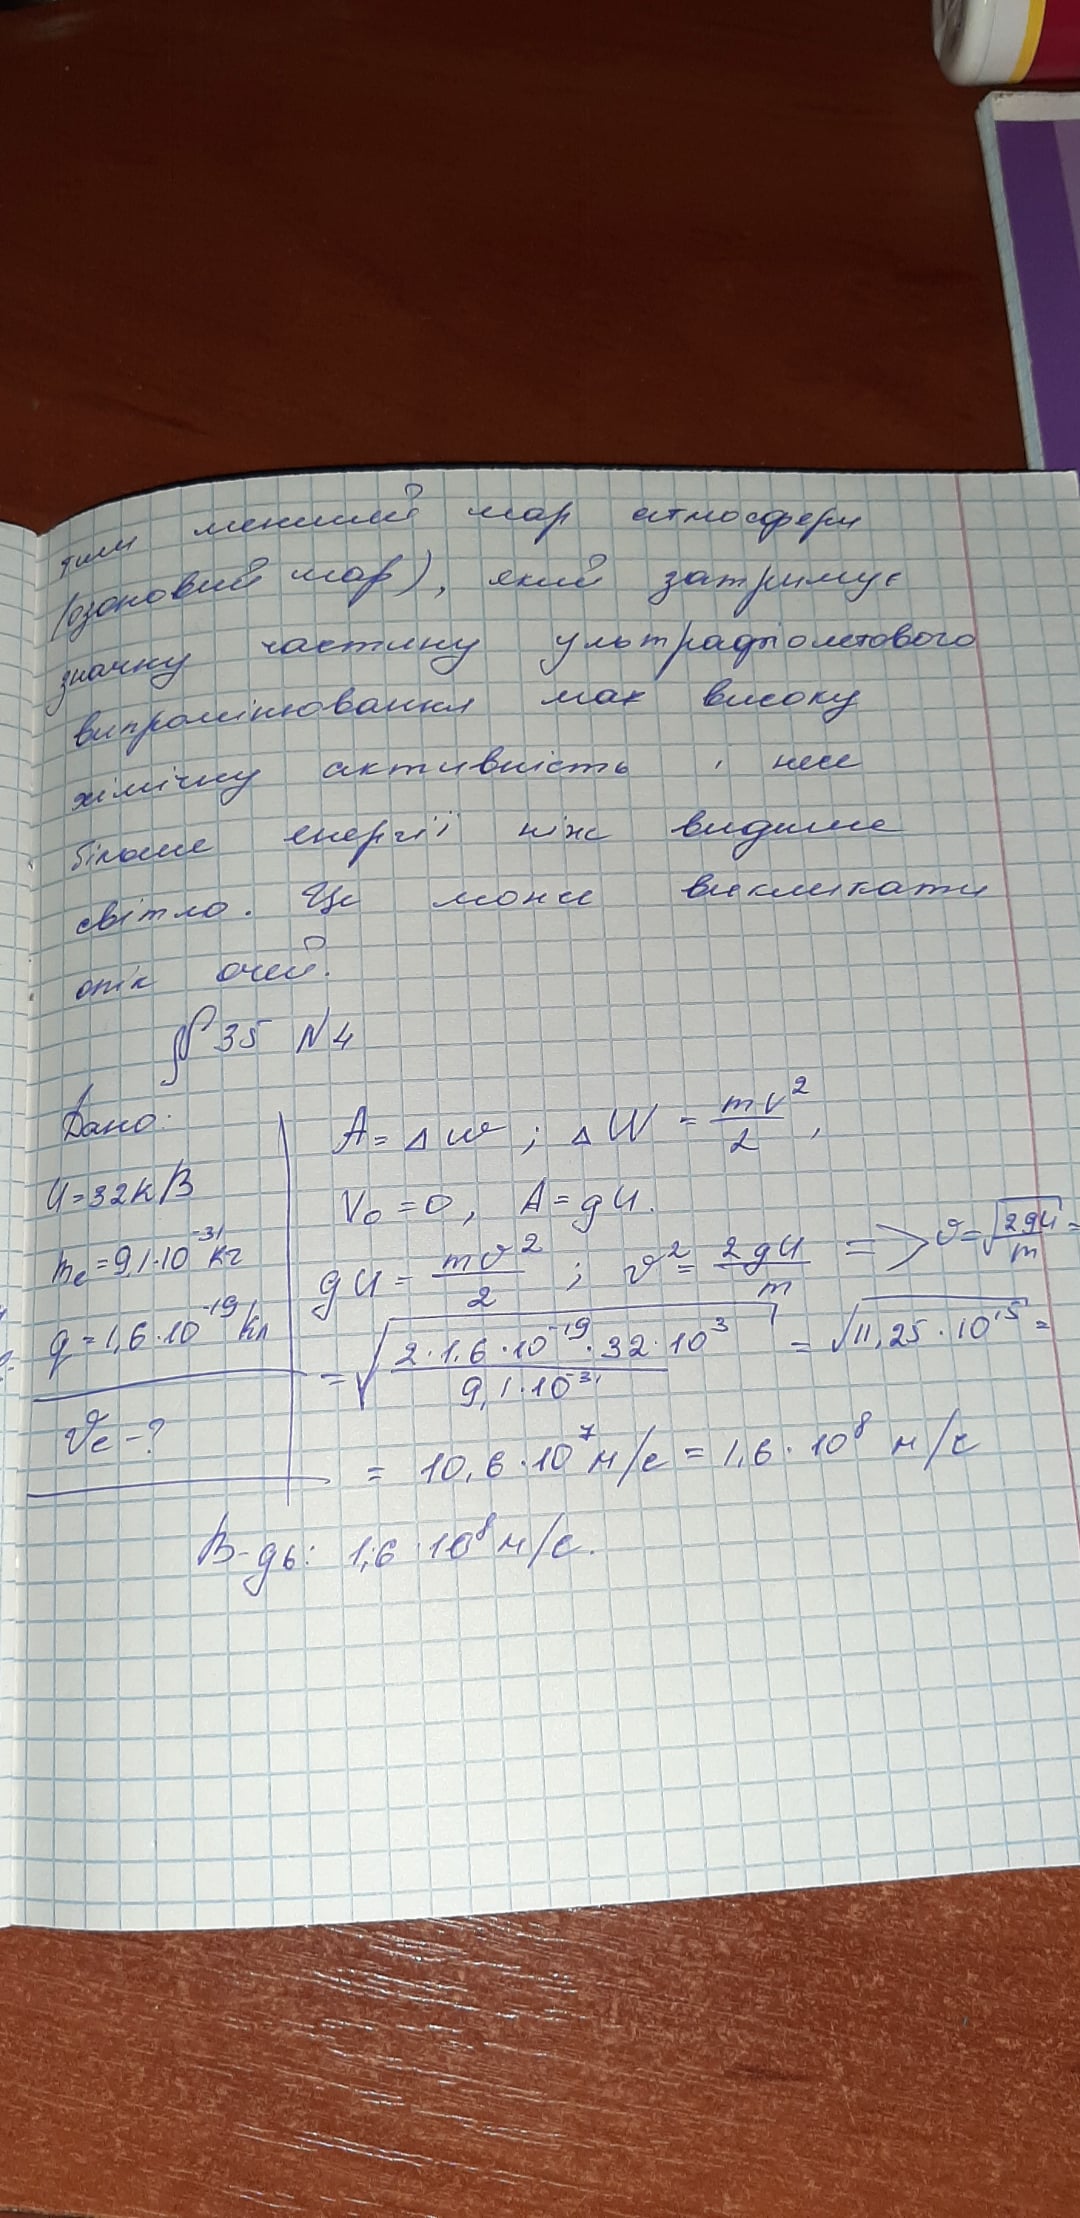 тим менший шар атмосфери
(озоновий шар), який затримує
значну частину ультрафіолетового
випромінювання має високу
хімічну активність і несе
більше енергії ніж видиме
світло. Це може викликати
опік очей.
§35 N4
Дано:
U=32кВ
mₑ=9,1·10⁻³¹кг
q=1,6·10⁻¹⁹Кл
vₑ-?
A=Δw; ΔW=mv²/2,
V₀=0, A=qU.
qU=mv²/2; v²=2qU/m => v=√(2qU/m)=
=√(2·1,6·10⁻¹⁹·32·10³/9,1·10⁻³¹)=√(11,25·10¹⁵)=
=10,6·10⁷м/с=1,6·10⁸ м/с
В-дь: 1,6·10⁸м/с.